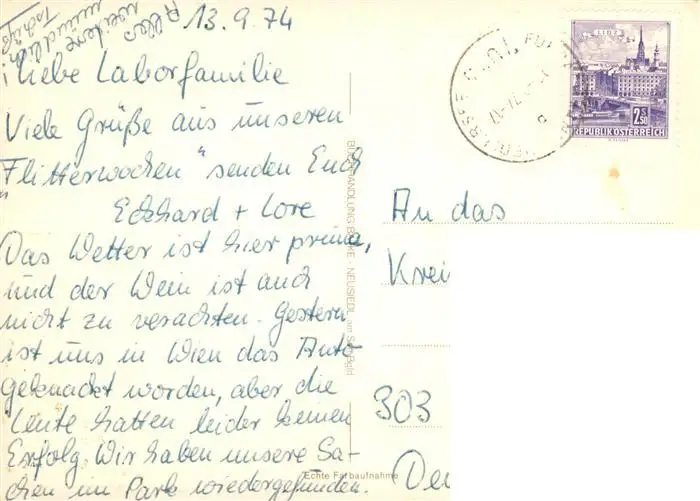 13.9.74
Alles
weitere
mündlich
Tschüß
Liebe Laborfamilie
Viele Grüße aus unseren
"Flitterwochen" senden Euch
Eckhard + Lore
Das Wetter ist hier prima,
und der Wein ist auch
nicht zu verachten. Gestern
ist uns in Wien das Auto
geknackt worden, aber die
Leute hatten leider keinen
Erfolg. Wir haben unsere Sa-
chen im Park wiedergefunden.
NEUSIEDL am See
Echte Farbaufnahme
LINZ
2.50
REPUBLIK ÖSTERREICH
An das
Krei
303
Deu